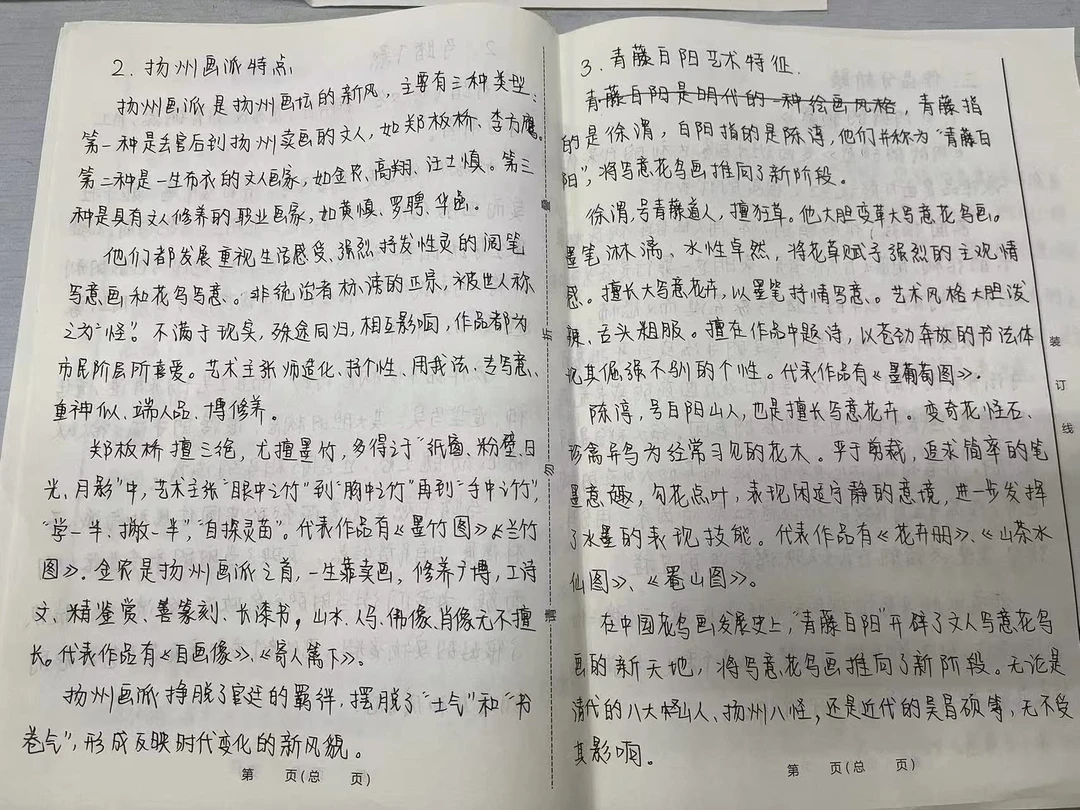 2. 扬州画派特点
扬州画派是扬州画坛的新风，主要有三种类型：
第一种是去官后到扬州卖画的文人，如郑板桥、李方膺。
第二种是一生布衣的文人画家，如金农、高翔、汪士慎。第三
种是具有文人修养的职业画家，如黄慎、罗聘、华嵒。
他们都发展重视生活感受、强烈抒发性灵的阔笔
写意画和花鸟写意、。非统治者标谤的正宗，被世人称
之为“怪”。不满于现实，殊途同归，相互影响，作品都为
市民阶层所喜爱。艺术主张师造化、抒个性、用我法、专写意、
重神似、端人品、博修养。
郑板桥擅三绝，尤擅墨竹，多得于“纸窗、粉壁、日
光、月影”中，艺术主张“眼中之竹”到“胸中之竹”再到“手中之竹”，
“学一半、撇一半”，“自探灵苗”。代表作品有《墨竹图》《兰竹
图》。金农是扬州画派之首，一生靠卖画，修养广博，工诗
文、精鉴赏、善篆刻、长漆书，山水、人马、佛像、肖像无不擅
长。代表作品有《自画像》、《寄人篱下》。
扬州画派挣脱了宫廷的羁绊，摆脱了“士气”和“书
卷气”，形成反映时代变化的新风貌。
第 页(总 页)
3. 青藤白阳艺术特征.
青藤白阳是明代的一种绘画风格，青藤指
的是徐渭，白阳指的是陈淳，他们并称为“青藤白
阳”，将写意花鸟画推向了新阶段。
徐渭，号青藤道人，擅狂草。他大胆变革大写意花鸟画。
墨笔淋漓、水性卓然，将花草赋予强烈的主观情
感。擅长大写意花卉，以墨笔抒情写意、。艺术风格大胆泼
辣、舌头粗服。擅在作品中题诗，以苍劲奔放的书法体
现其倔强不驯的个性。代表作品有《墨葡萄图》.
陈淳，号白阳山人，也是擅长写意花卉。变奇花怪石、
珍禽异鸟为经常习见的花木。平于剪裁，追求简率的笔
墨意趣，勾花点叶，表现闲适宁静的意境，进一步发挥
了水墨的表现技能。代表作品有《花卉册》、《山茶水
仙图》、《罨山图》。
在中国花鸟画发展史上，“青藤白阳”开辟了文人写意花鸟
画的新天地，将写意花鸟画推向了新阶段。无论是
清代的八大山人、扬州八怪，还是近代的吴昌硕等，无不受
其影响。
第 页(总 页)
装
订
线